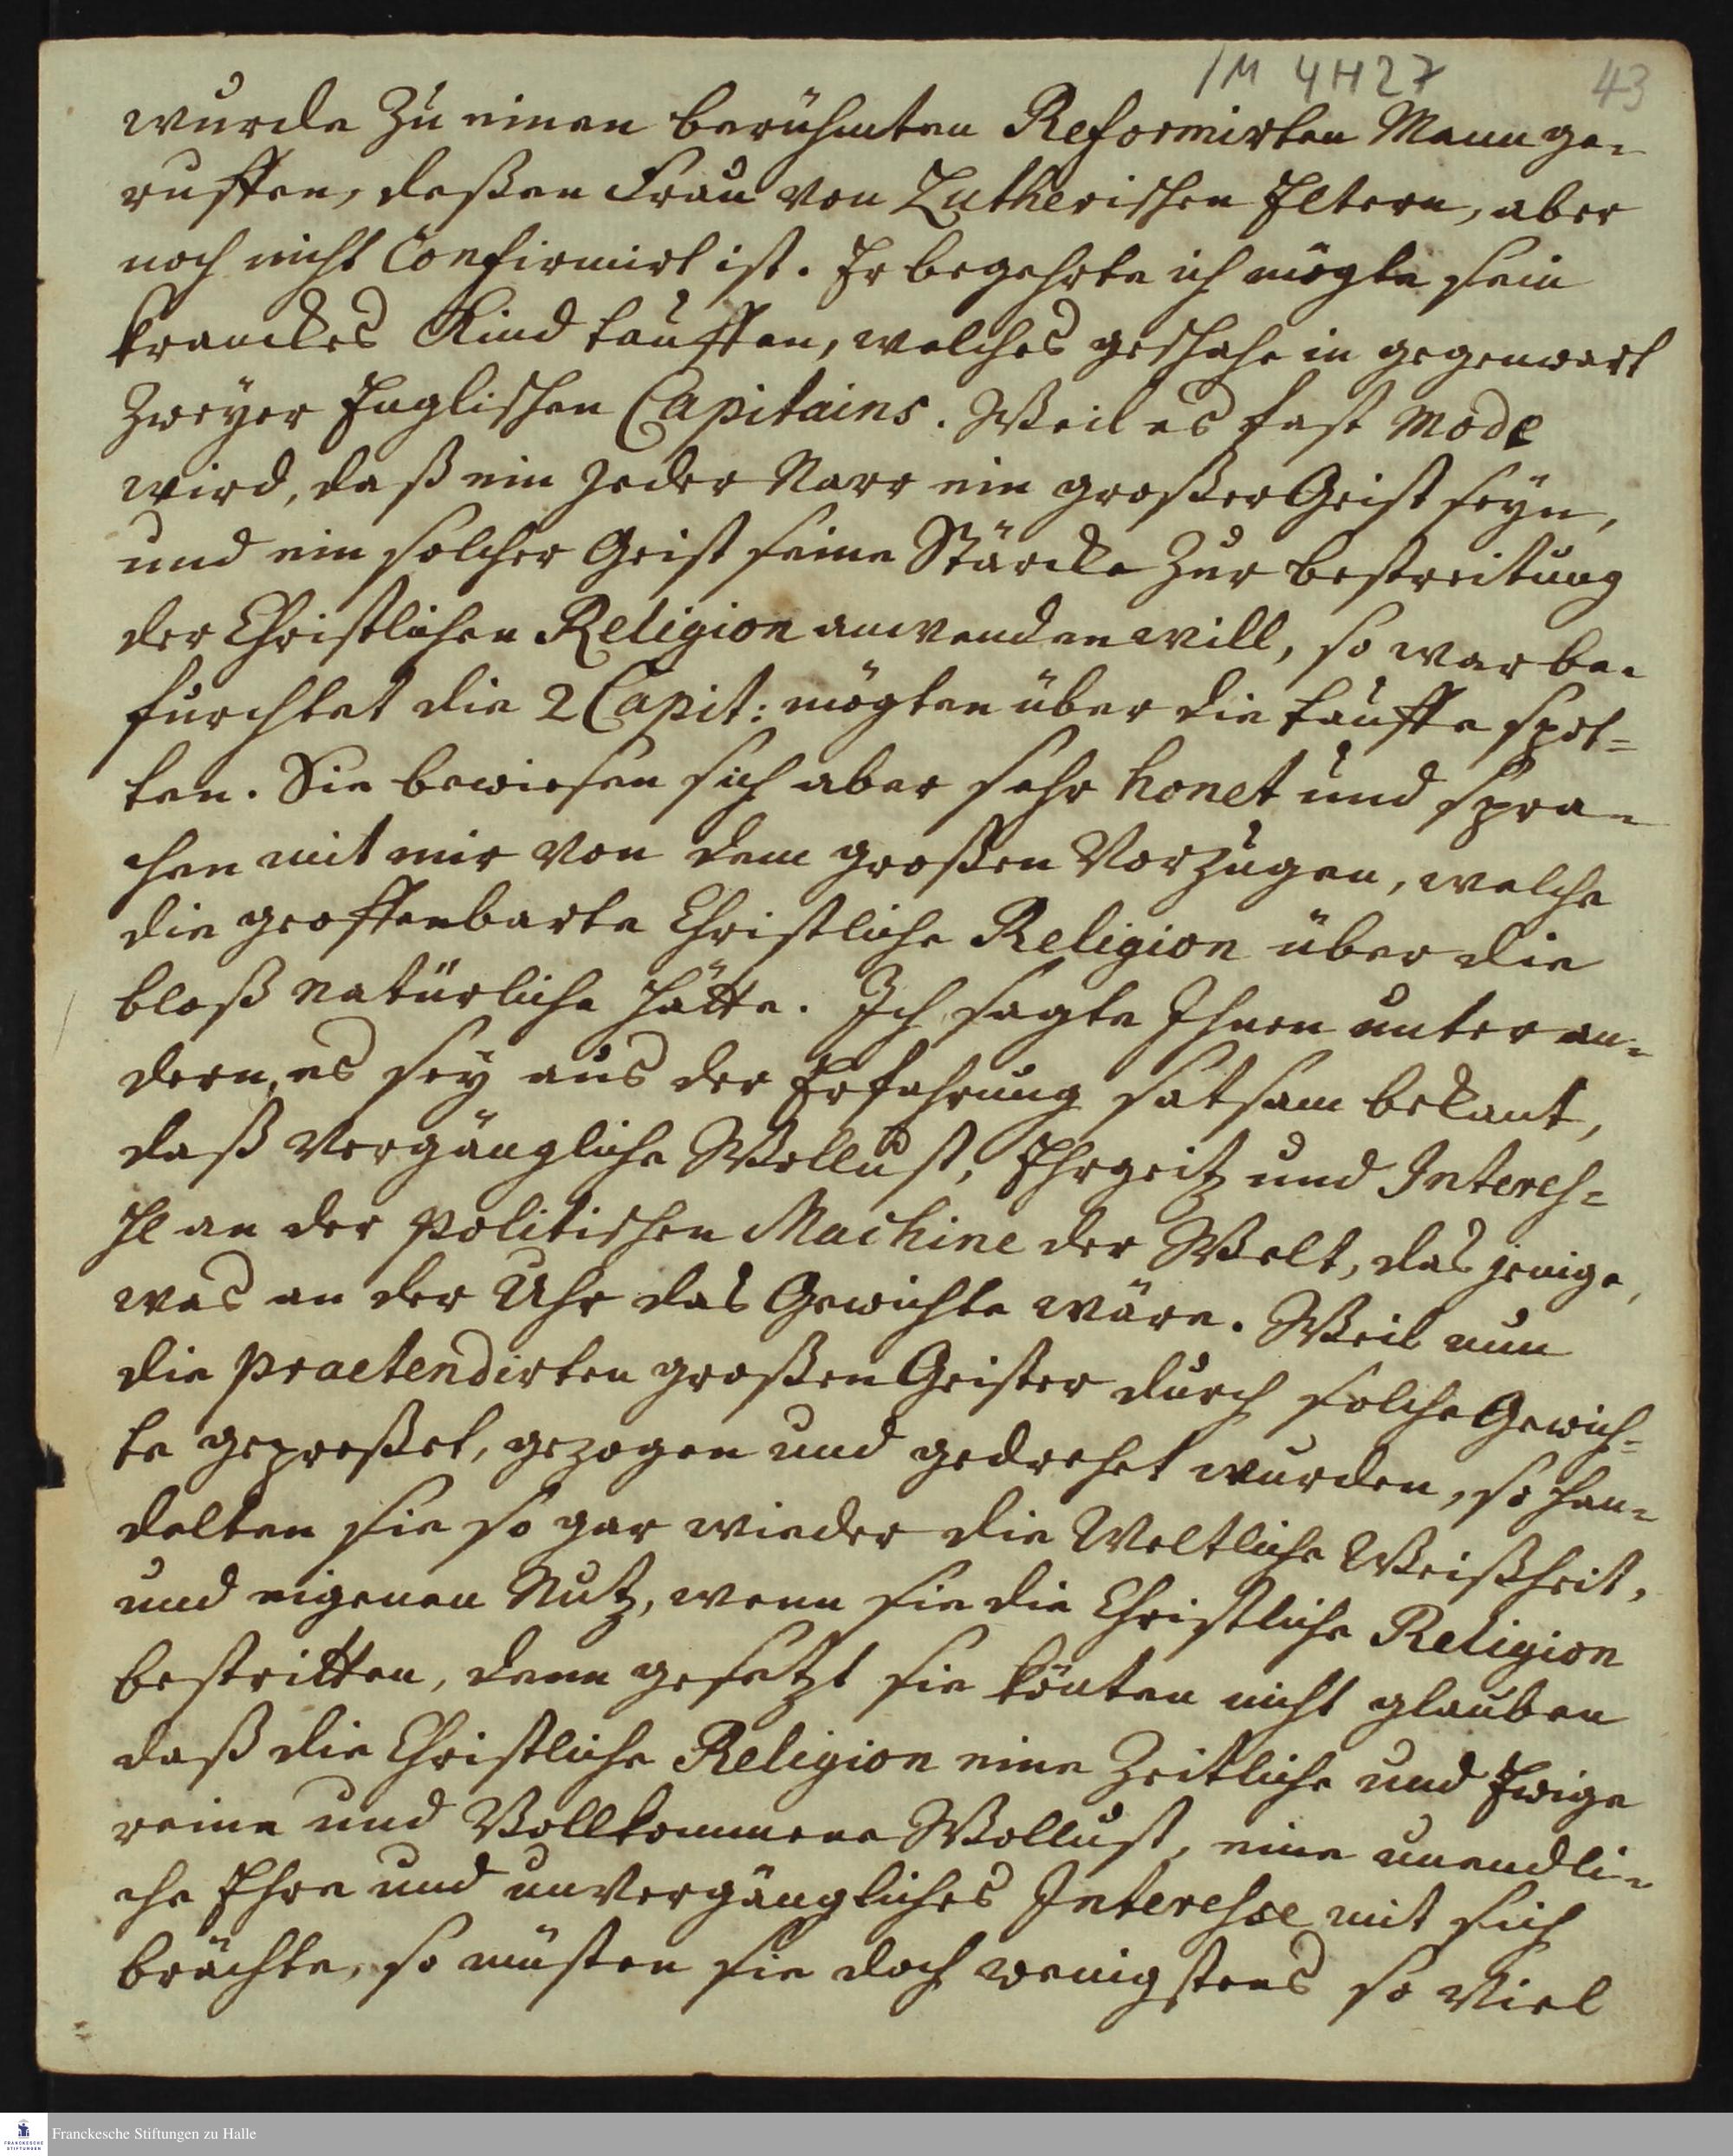 1M 4H27
43
wurde zu einen berühmten Reformirten Mann ge-
ruffen, deßen Frau von Lutherischen Eltern, aber
noch nicht Confirmirt ist. Er begehrte ich mögte sein
kranckes Kind tauffen, welches geschahe in gegenwart
zweyer Englischen Capitains. Weil es fast mode
wird, daß ein jeder Narr ein großer Geist seyn,
und ein solcher Geist seine Stärcke zur bestreitung
der Christlichen Religion anwenden will, so war be-
furchtet die 2 Capit: mögten über die tauffe spot=
ten. Sie bewiesen sich aber sehr honet und spra-
chen mit mir von dem großen Vorzügen, welche
die geoffenbarte Christliche Religion über die
bloß natürliche hätte. Ich sagte Ihnen unter an-
dern, es sey aus der Erfahrung satsam bekant,
daß vergängliche Wollust, Ehrgeitz und Interes=
se an der politischen Machine der Welt, das jenige,
was an der Uhr das Gewichte wäre. Weil nun
die praetendirten großen Geister durch solche Gewich=
te gepreßet, gezogen und gedrehet wurden, so han-
delten sie so gar wieder die Weltliche Weißheit,
und eigenen Nutz, wenn sie die Christliche Religion
bestritten, denn gesetzt sie könten nicht glauben
daß die Christliche Religion eine Zeitliche und Ewige
reine und Vollkommene Wollust, eine unendli-
che Ehre und unvergängliches Interesse mit sich
brächte, so müsten sie doch wenigstens so viel
Franckesche Stiftungen zu Halle
FRANCKESCHE
STIFTUNGEN